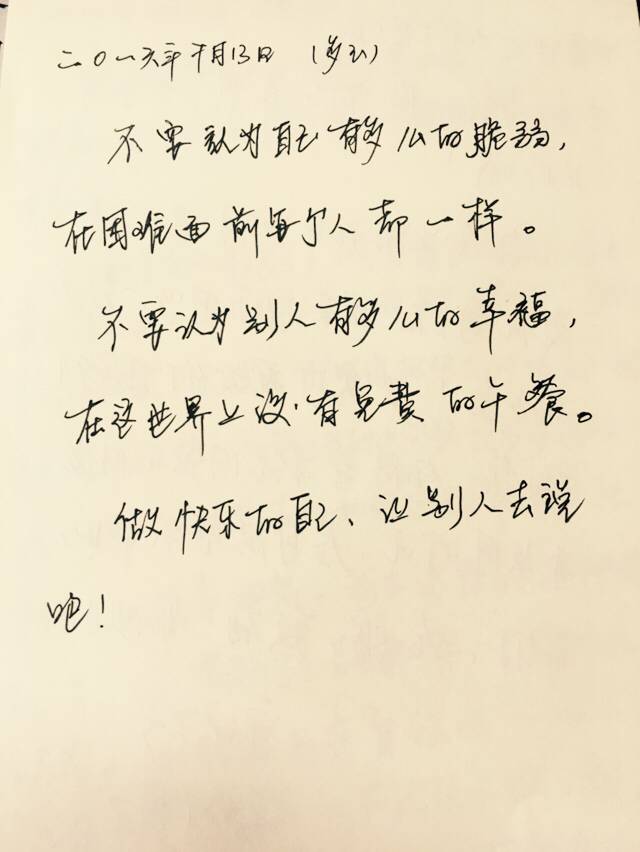 二〇一六年十月13日
不要认为自己有多么的脆弱，
在困难面前每个人都一样。
不要认为别人有多么的幸福，
在这世界上没有免费的午餐。
做快乐的自己、让别人去说
吧！